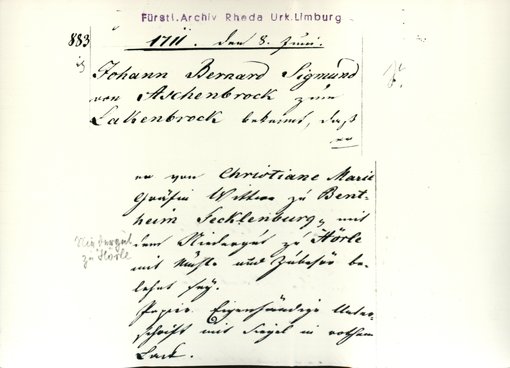 Fürstl. Archiv Rheda Urk. Limburg
883
1711. den 8. Juni.
Johann Bernard Sigmund
von Aschenbrock zum
Lakenbrock bekennt, daß
er
er von Christiane Marie
Gräfin Wittwe zu Bent-
heim Tecklenburg, mit
dem Niedergut zu Hörle
mit Mühle und Zubehör be-
lehnt sey.
Papier. Eigenhändige Unter-
schrift mit Siegel in rothem
Lack.
Niedergut
zu Hörle